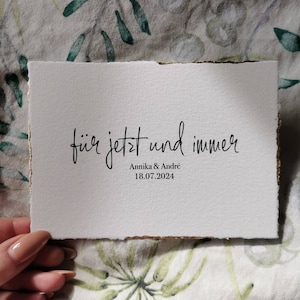 für jetzt und immer
Annika & André
18.07.2024